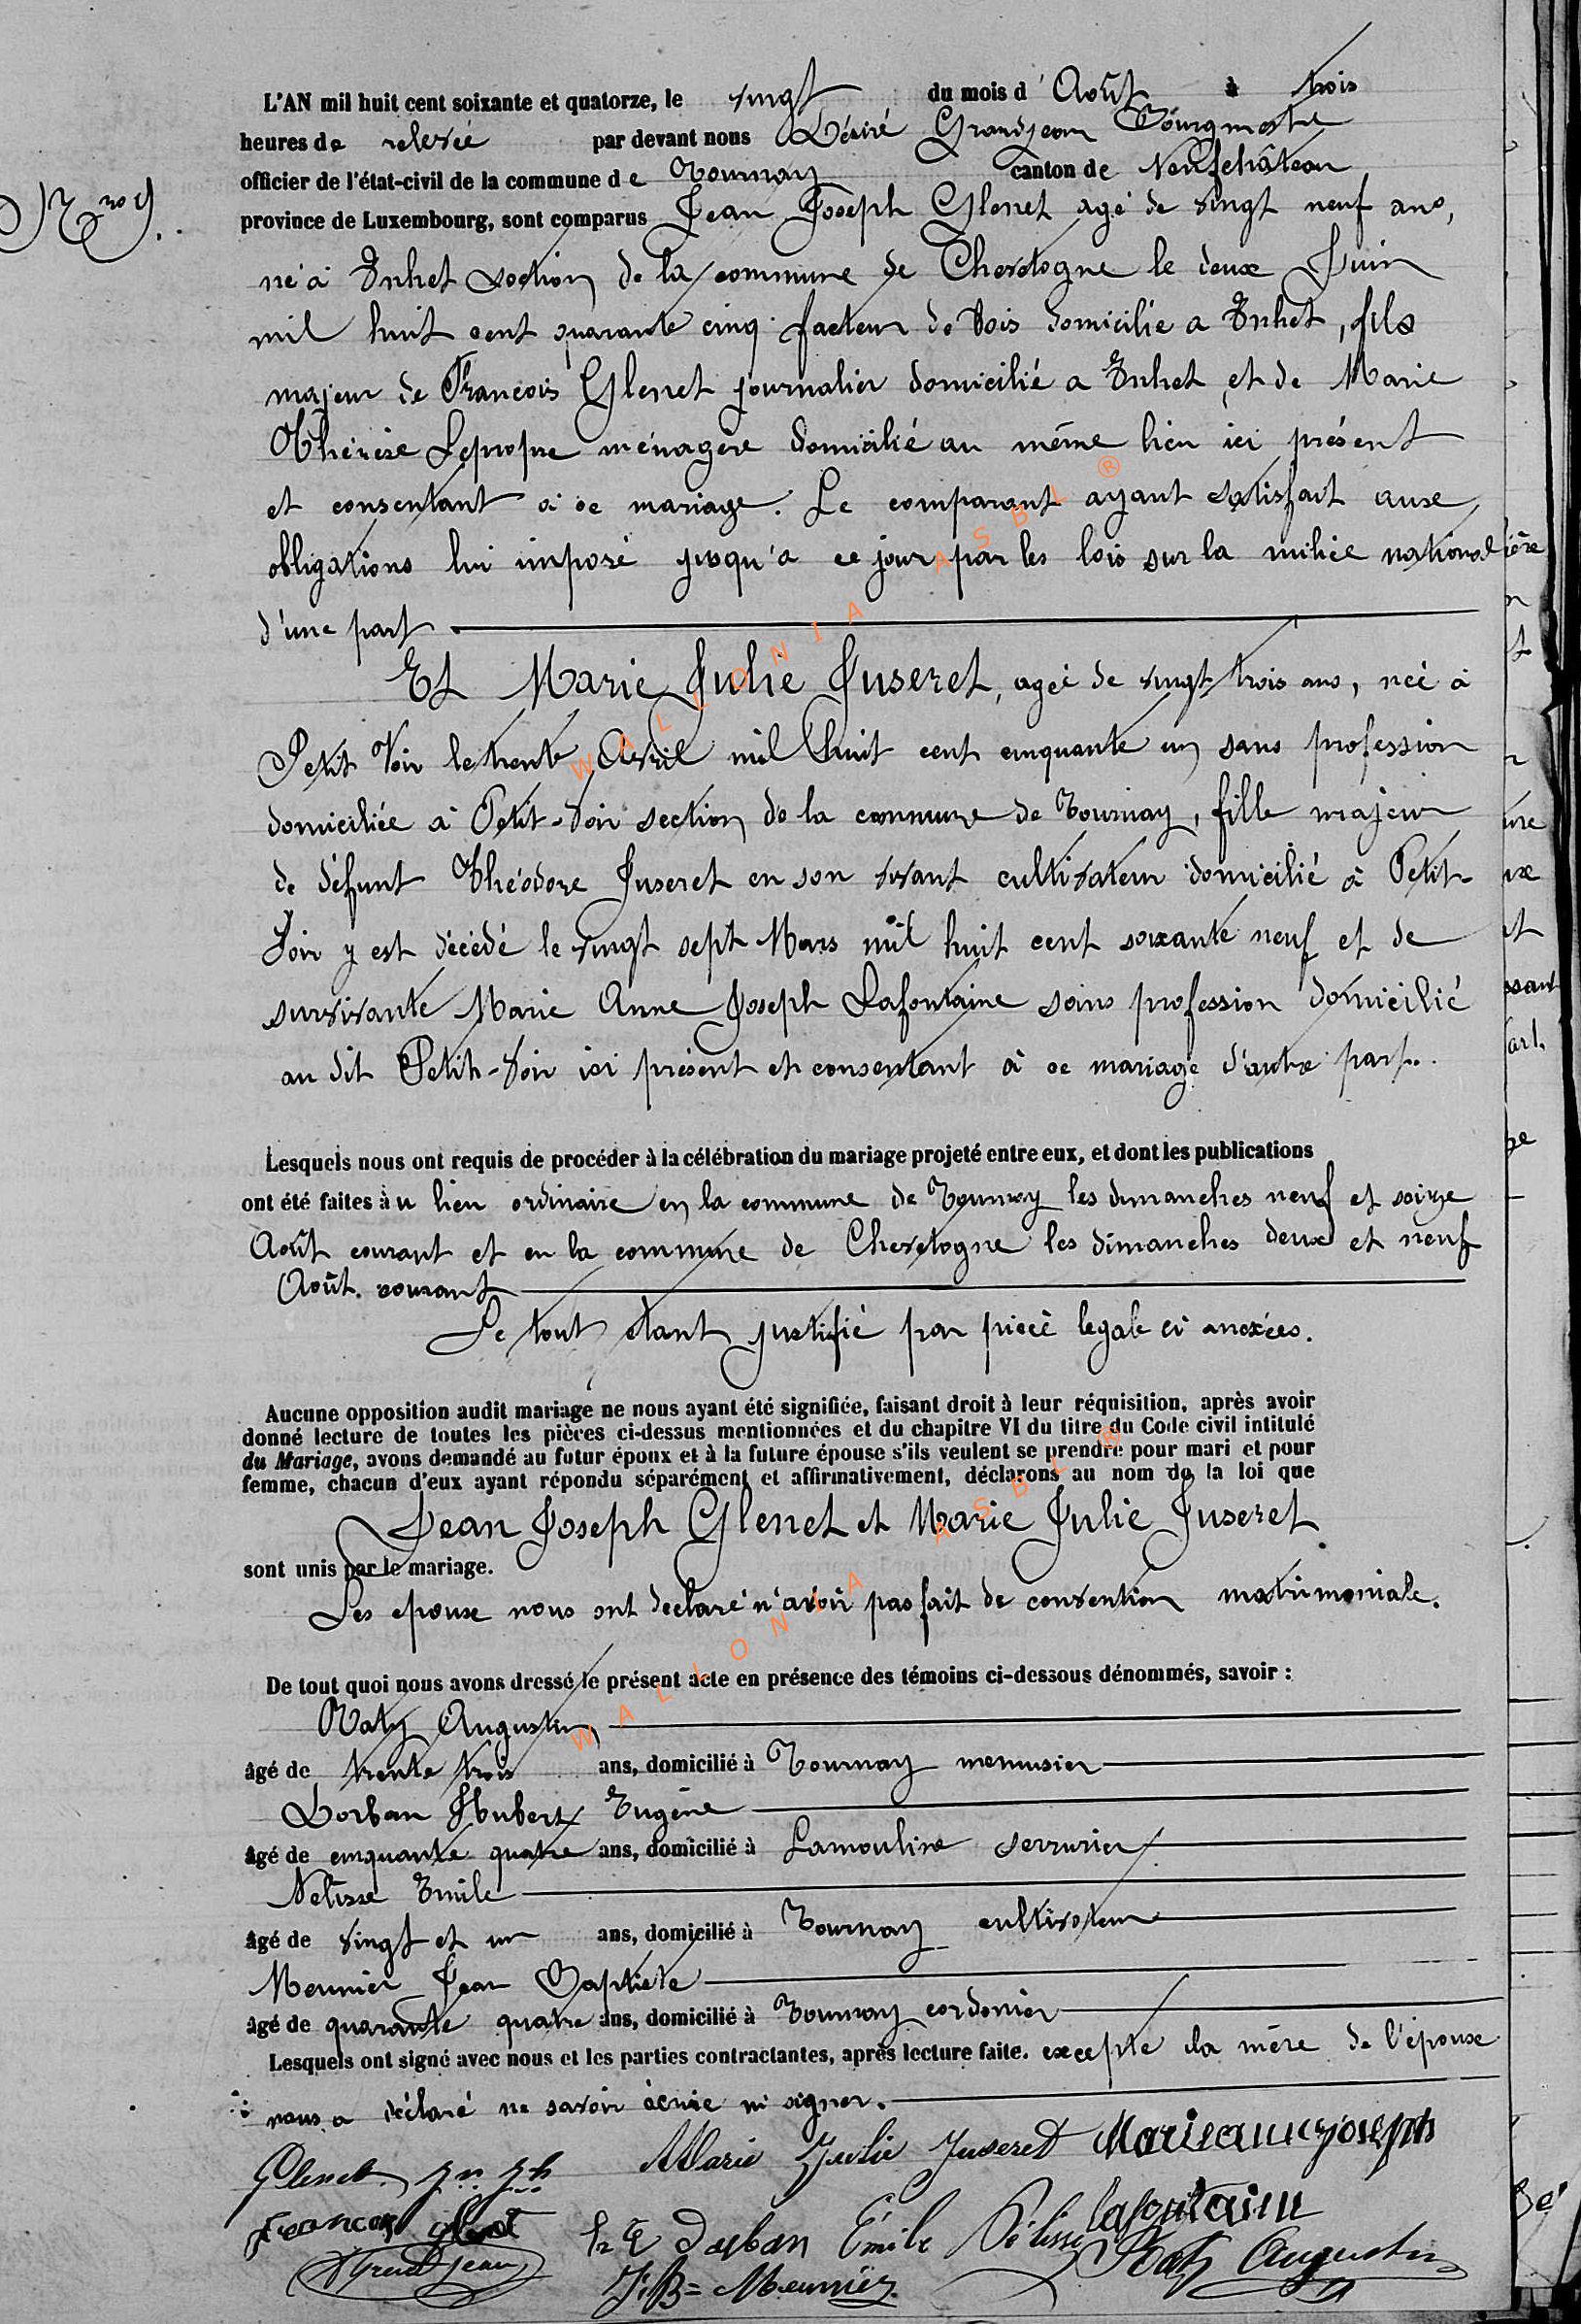 L'AN mil huit cent soixante et quatorze, le vingt du mois d'Août à trois
heures de relevée par devant nous Désiré Grandjean Bourgmestre
officier de l'état-civil de la commune de Tournay canton de Neufchâteau
N° 9.
province de Luxembourg, sont comparus Jean Joseph Glenet agé de vingt neuf ans,
né à Inhet section de la commune de Chevetogne le deux Juin
mil huit cent quarante cinq facteur de bois domicilié a Inhet, fils
majeur de François Glenet journalier domicilié a Inhet, et de Marie
Thérèse Lepropre ménagère domicilié au même lieu ici présent
et consentant à ce mariage. Le comparant ayant satisfait aux
obligations lui imposé jusqu'a ce jour par les lois sur la milice national
d'une part
Et Marie Julie Juseret, agée de vingt trois ans, née à
Petit Voir le trente Avril mil huit cent cinquante un sans profession
domiciliée à Petit-Voir section de la commune de Tournay, fille majeur
de défunt Théodore Juseret en son vivant cultivateur domicilié à Petit-
Voir y est décédé le vingt sept Mars mil huit cent soixante neuf et de
survivante Marie Anne Joseph Lafontaine sans profession domicilié
au dit Petit-Voir ici présent et consentant à ce mariage d'autre part.
Lesquels nous ont requis de procéder à la célébration du mariage projeté entre eux, et dont les publications
ont été faites au lieu ordinaire en la commune de Tournay les dimanches neuf et seize
Août courant et en la commune de Chevetogne les dimanches deux et neuf
Août. courant
Le tout étant justifié par piècè legale ci anexées.
Aucune opposition audit mariage ne nous ayant été signifiée, faisant droit à leur réquisition, après avoir
donné lecture de toutes les pièces ci-dessus mentionnées et du chapitre VI du titre du Code civil intitulé
du Mariage, avons demandé au futur époux et à la future épouse s'ils veulent se prendre pour mari et pour
femme, chacun d'eux ayant répondu séparément et affirmativement, déclarons au nom de la loi que
Jean Joseph Glenet et Marie Julie Juseret
sont unis par le mariage.
Les epoux nous ont declaré n'avoir pas fait de convention matrimoniale.
De tout quoi nous avons dressé le présent acte en présence des témoins ci-dessous dénommés, savoir :
Roty Augustin
âgé de trente trois ans, domicilié à Tournay menusier
Dorban Hubert Eugène
âgé de cinquante quatre ans, domicilié à Lamouline serrurier
Nélisse Emile
âgé de vingt et un ans, domicilié à Tournay cultivateur
Meunier Jean Baptiste
âgé de quarante quatre ans, domicilié à Tournay cordonier
Lesquels ont signé avec nous et les parties contractantes, après lecture faite. excepté la mère de l'épouse
nous a déclaré ne savoir écrire ni signer.
Glenet Jn. Jh Marie Julie Juseret Marie anne joseph
lafontaine
François glenet H E Dorban Émile Nélisse Roty Augustin
D Grandjean J. B = Meunier
WALLONIA ASBL ®
WALLONIA ASBL ®